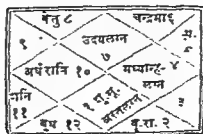 केतु ८
चन्द्रमा ६
९
उदयलग्न
७
अर्धरात्रि १०
मध्यान्ह ४
लग्न
शनि
११
१ सू. मं.
अस्तलग्न
३
बुध १२
बृ. रा. २